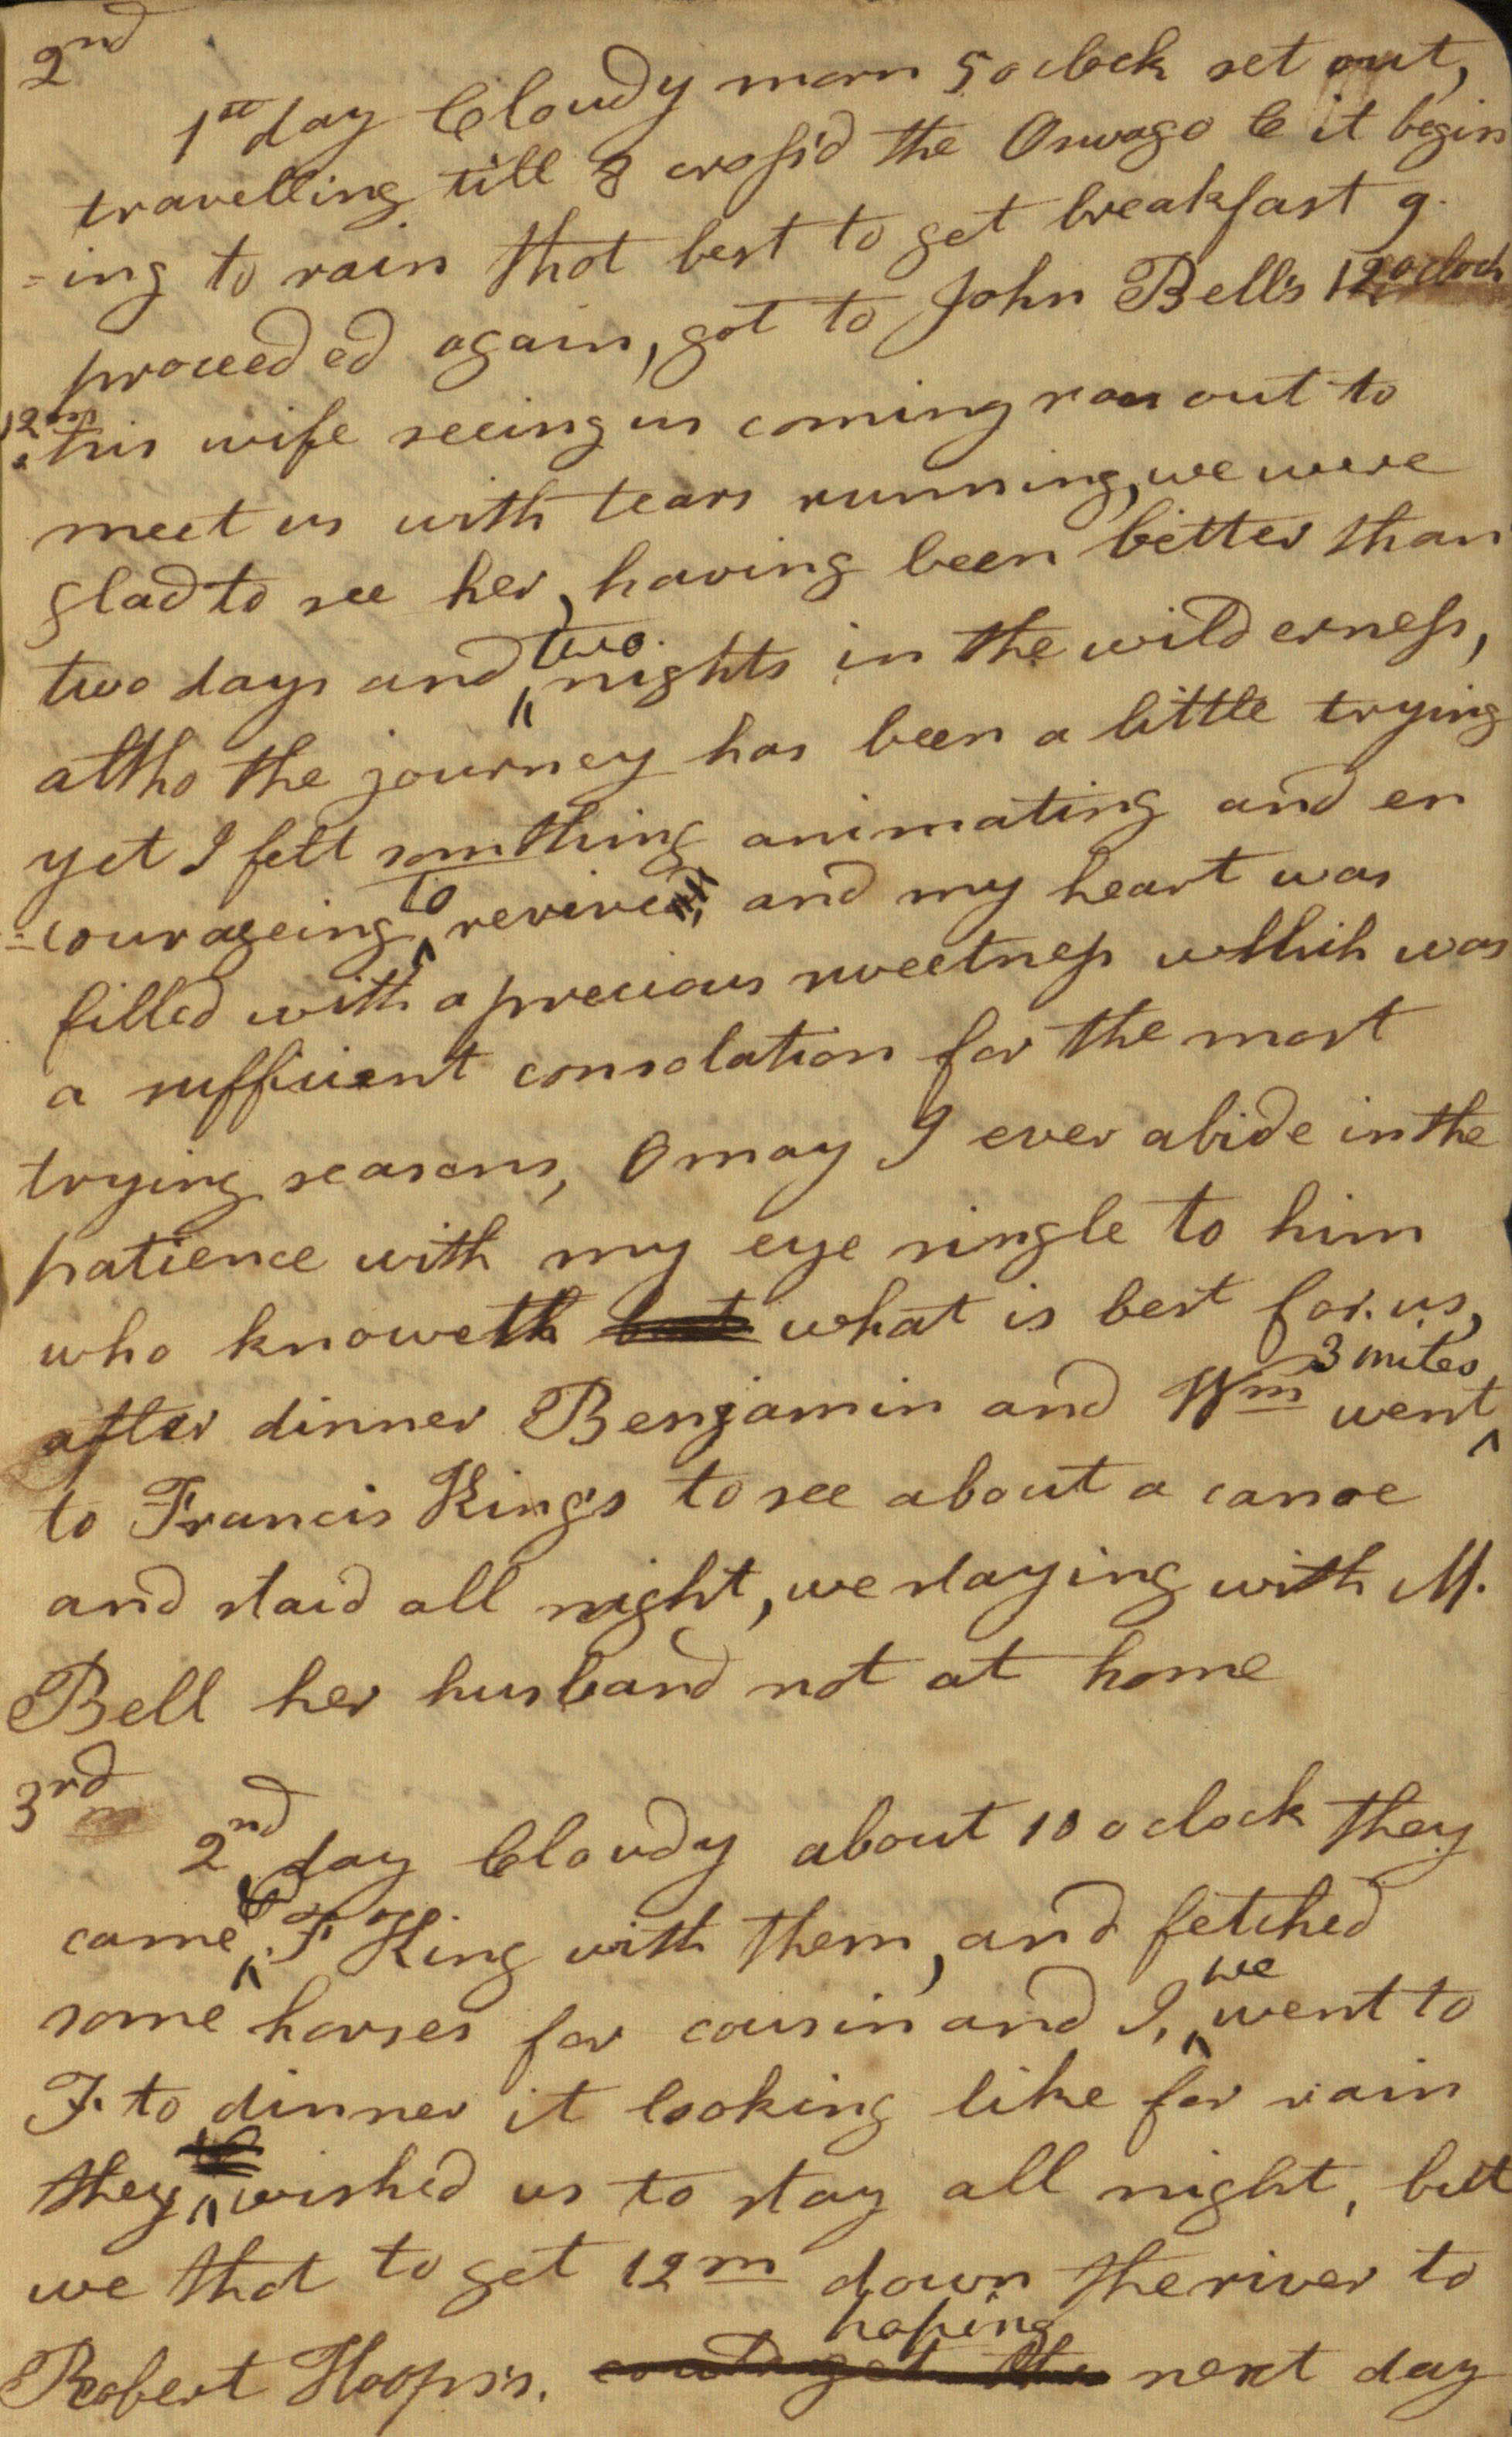 2nd
1st day Cloudy morn 5 o clock set out,
travelling till 8 cross'd the Oswago C it begin
=ing to rain thot best to get breakfast 9.
proceeded again, got to John Bell's 12 o clock
12m
his wife seeing us coming ran out to
meet us with tears running, we were
glad to see her, having been better than
two days and two nights in the wilderness,
altho the journey has been a little trying
yet I felt somthing animating and en
=courageing to revive, and my heart was
filled with a precious sweetness whhih was
a sufficient consolation for the most
trying seasons, O may I ever abide in the
patience with my eye single to him
who knoweth what is best for us,
after dinner Benjamin and Wm went 3 miles
to Francis King's to see about a canoe
and staid all night, we staying with M.
Bell her husband not at home
3rd
2nd day Cloudy about 10 o clock they
came & F King with them, and fetched
some horses for cousin and I, we went to
F. to dinner it looking like for rain
they wished us to stay all night, but
we thot to get 12m down the river to
Robert Hoops's. hoping next day